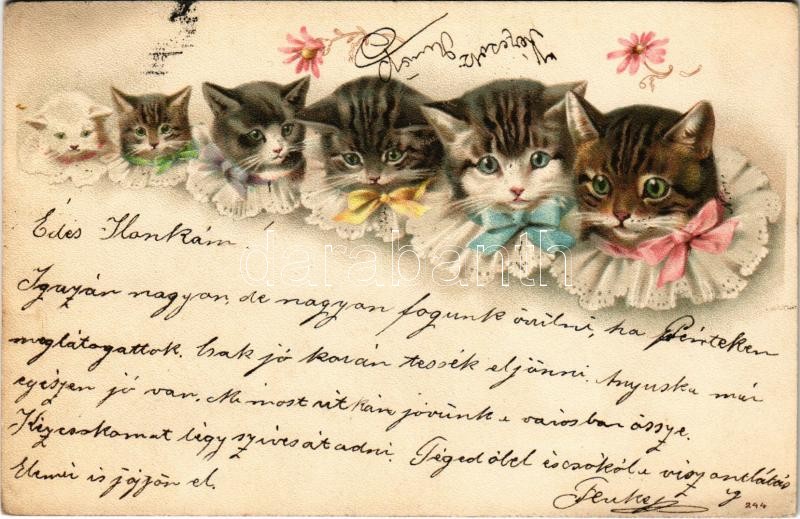 Édes Ilonkám!
Igazán nagyon, de nagyon fogunk örülni, ha Pénteken
meglátogattok. Csak jó korán tessék eljönni. Anyuska már
egészen jó van. Mi most ritkán jövünk a városban össze.
Kézcsókomat légy szíves átadni. Téged ölel és csókol a viszontlátásig
Elemér is jöjjön el.
244
darabanth